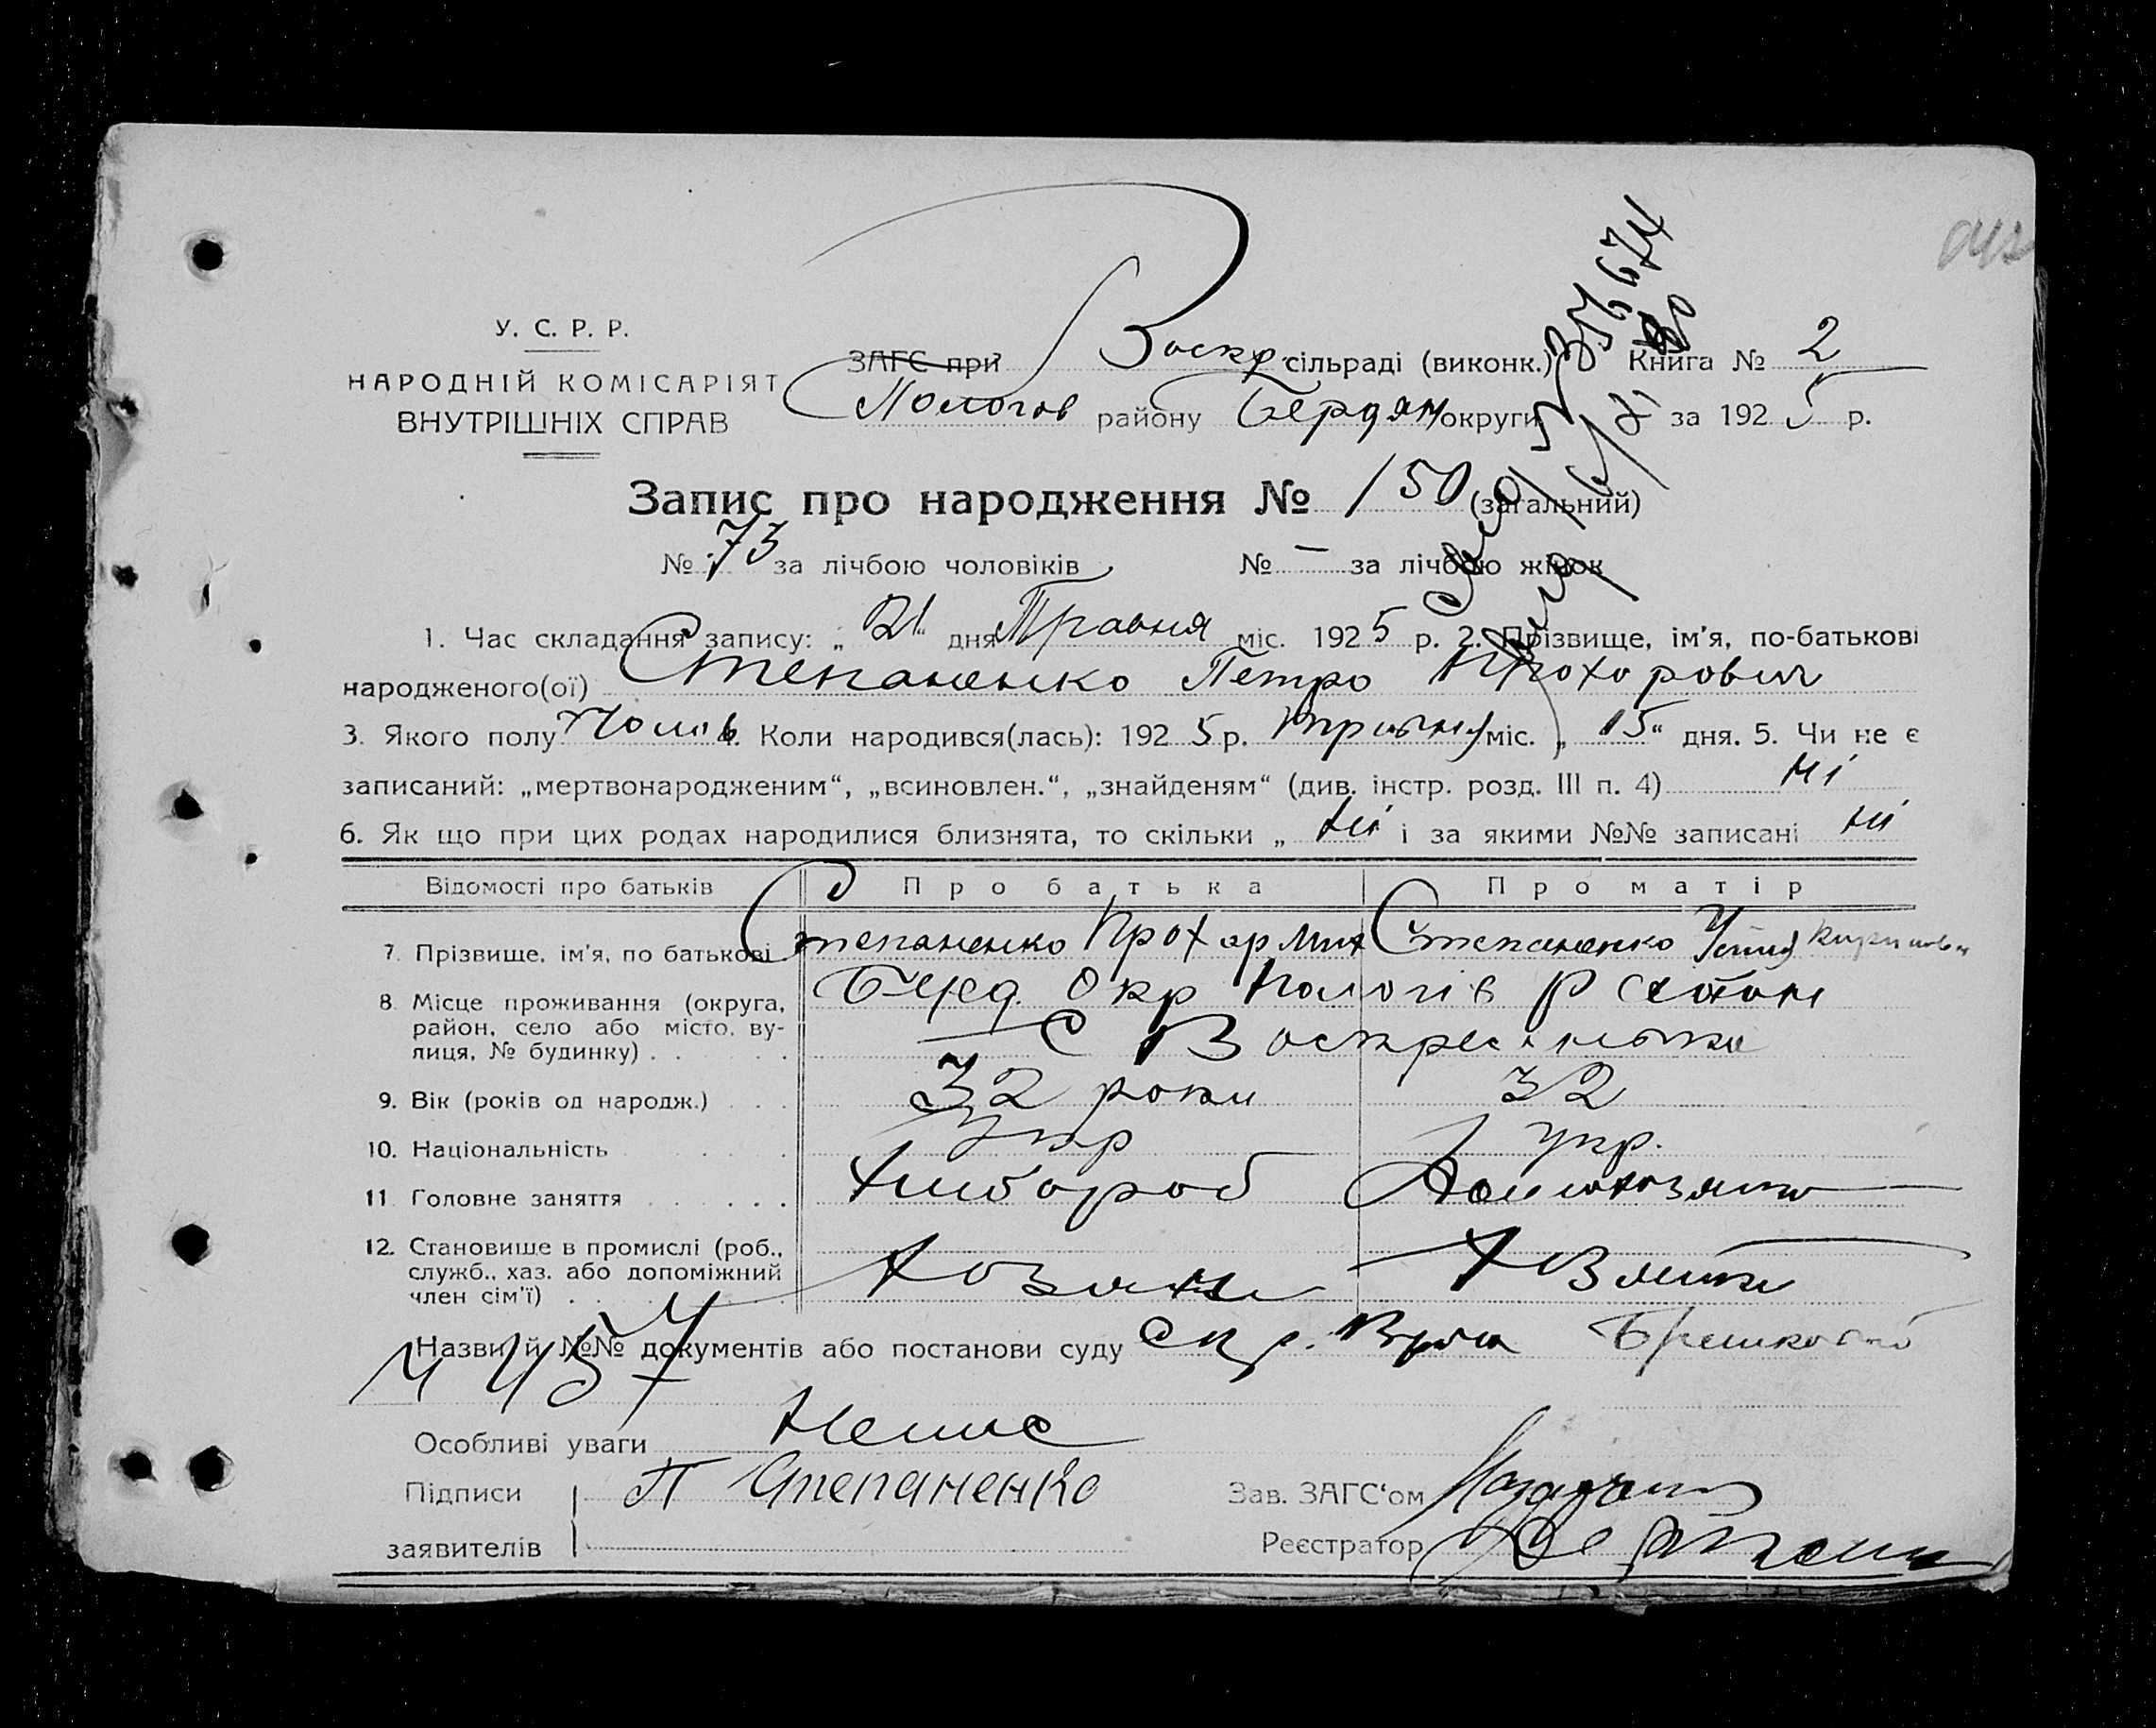 У. С. Р. Р.
НАРОДНІЙ КОМІСАРІЯТ
ВНУТРІШНІХ СПРАВ
ЗАГС при Воскр. сільраді (виконк.) Книга № 2
Пологов району Бердян округи за 1925 р.
Запис про народження № 150 (загальний)
№ 73 за лічбою чоловіків № — за лічбою жінок
1. Час складання запису: „21“ дня Травня міс. 1925 р. 2. Прізвище, ім'я, по-батькові
народженого(ої) Степаненко Петро Прохорович
3. Якого полу Чолов. Коли народився(лась): 1925 р. травня міс. „15“ дня. 5. Чи не є
записаний: „мертвонародженим“, „всиновлен.“, „знайденям“ (див. інстр. розд. III п. 4) ні
6. Як що при цих родах народилися близнята, то скільки „ ні і за якими №№ записані ні
Відомості про батьків Про батька Про матір
7. Прізвище, ім'я, по батькові Степаненко Прохор Степаненко
8. Місце проживання (округа, район, село або місто, вулиця, № будинку) Окр Пологів Р
С Воскресенка
9. Вік (років од народж.) 32 роки 32
10. Національність Укр укр.
11. Головне заняття Хлібороб
12. Становище в промислі (роб., служб., хаз. або допоміжний член сім'ї) Хозяїн
Назви й №№ документів або постанови суду
Особливі уваги Немає
Підписи П Степаненко Зав. ЗАГС'ом
заявителів Реєстратор